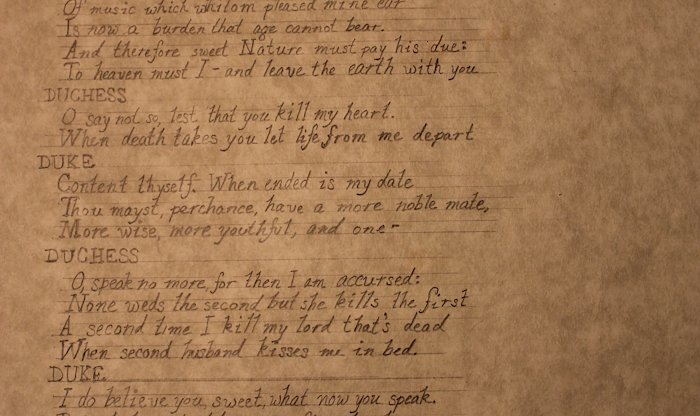 Of music which whilom pleased mine ear
Is now a burden that age cannot bear.
And therefore sweet Nature must pay his due:
To heaven must I - and leave the earth with you
DUCHESS
O say not so, lest that you kill my heart.
When death takes you let life from me depart
DUKE
Content thyself. When ended is my date
Thou mayst, perchance, have a more noble mate,
More wise, more youthful, and one -
DUCHESS
O, speak no more, for then I am accursed:
None weds the second but she kills the first
A second time I kill my lord that's dead
When second husband kisses me in bed.
DUKE.
I do believe you, sweet, what now you speak.